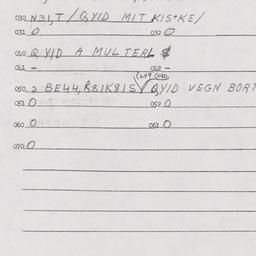 030 N31,T / QYID MIT KIS+KE/
031 0 032 0
040 QYID A MULTERL $
041 - 042 -
(249 
050 2 BE44,R81K81S/QYID VEGN BORT
051 0 052 0
060 0 061 0
070 0